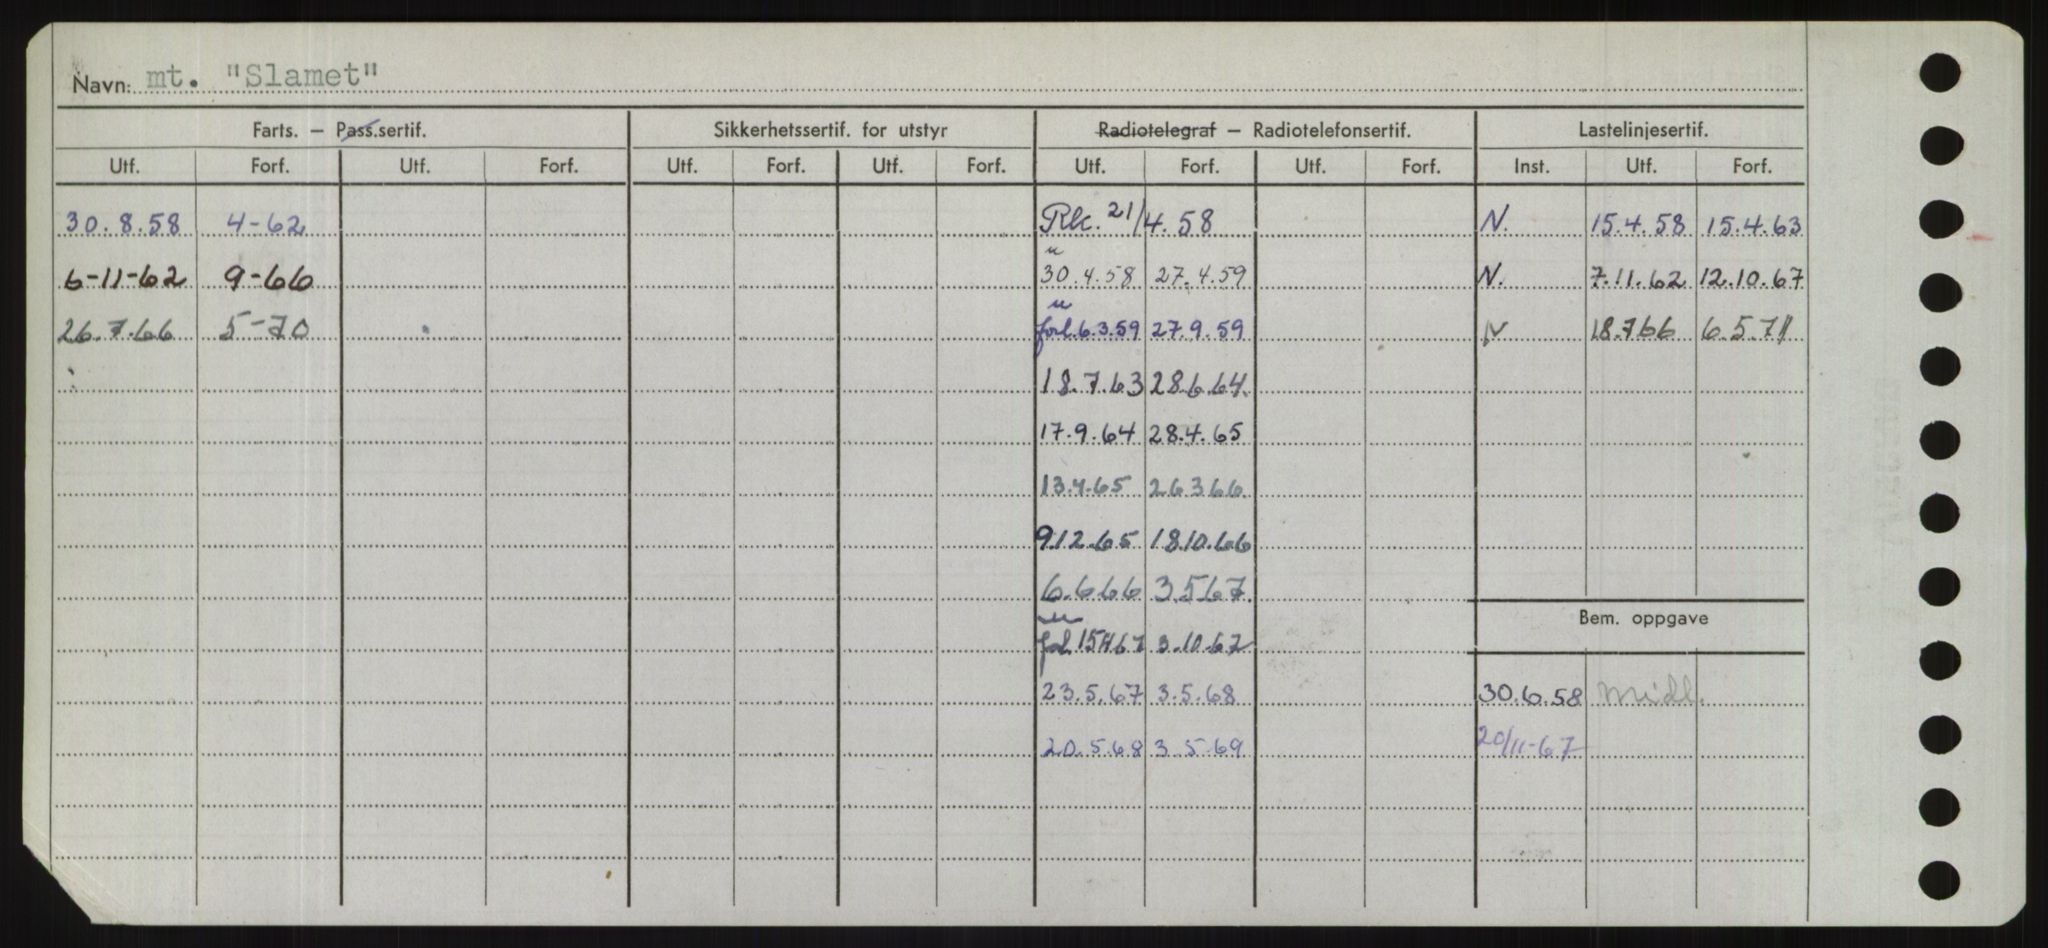 Navn: mt. "Slamet"
Farts. — Pass.sertif. Sikkerhetssertif. for utstyr Radiotelegraf — Radiotelefonsertif. Lastelinjesertif.
Utf. Forf. Utf. Forf. Utf. Forf. Utf. Forf. Utf. Forf. Utf. Forf. Inst. Utf. Forf.
30.8.58 4-62 Rk. 21/4.58 N. 15.4.58 15.4.63
"
6-11-62 9-66 30.4.58 27.4.59 N. 7.11.62 12.10.67
"
26.7.66 5-70 forl. 6.3.59 27.9.59 N 18.766 6.5.71
18.7.63 28.6.64.
17.9.64 28.4.65
13.4.65 26366
912.65 1810.66
6.666 3567.
Bem. oppgave
"
3.10.67
23.5.67 3.5.68 30.6.58 midl.
20.5.68 3.5.69 20/11-67